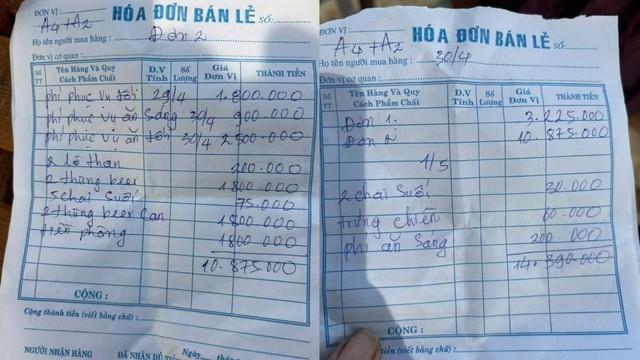 ĐƠN VỊ: A4+A2
HÓA ĐƠN BÁN LẺ Số:
Họ tên người mua hàng: Đơn 2
Đơn vị cơ quan:
Số TT Tên Hàng Và Quy Cách Phẩm Chất Đ.V Tính Số Lượng Giá Đơn Vị THÀNH TIỀN
phí phục vụ tối 29/4 1.800.000
phí phục vụ ăn sáng 30/4 900.000
phí phục vụ ăn tối 30/4 2500.000
2 lò than 200.000
2 thùng beer 1800.000
5 chai suối 75.000
2 thùng beer Can 1800.000
tiền phòng 1800.000
10.875000
CỘNG:
Cộng thành tiền (viết bằng chữ):
Ngày tháng
NGƯỜI NHẬN HÀNG ĐÃ NHẬN ĐỦ
ĐƠN VỊ: A4+A2
HÓA ĐƠN BÁN LẺ Số:
Họ tên người mua hàng: 30/4
Đơn vị cơ quan:
Số TT Tên Hàng Và Quy Cách Phẩm Chất Đ.V Tính Số Lượng Giá Đơn Vị THÀNH TIỀN
Đơn 1. 3.225.000
Đơn 2 10.875.000
1/5
2 chai suối 30.000
trứng chiên 60.000
phí ăn sáng 200.000
14.390.000
CỘNG:
Cộng thành tiền (viết bằng chữ):